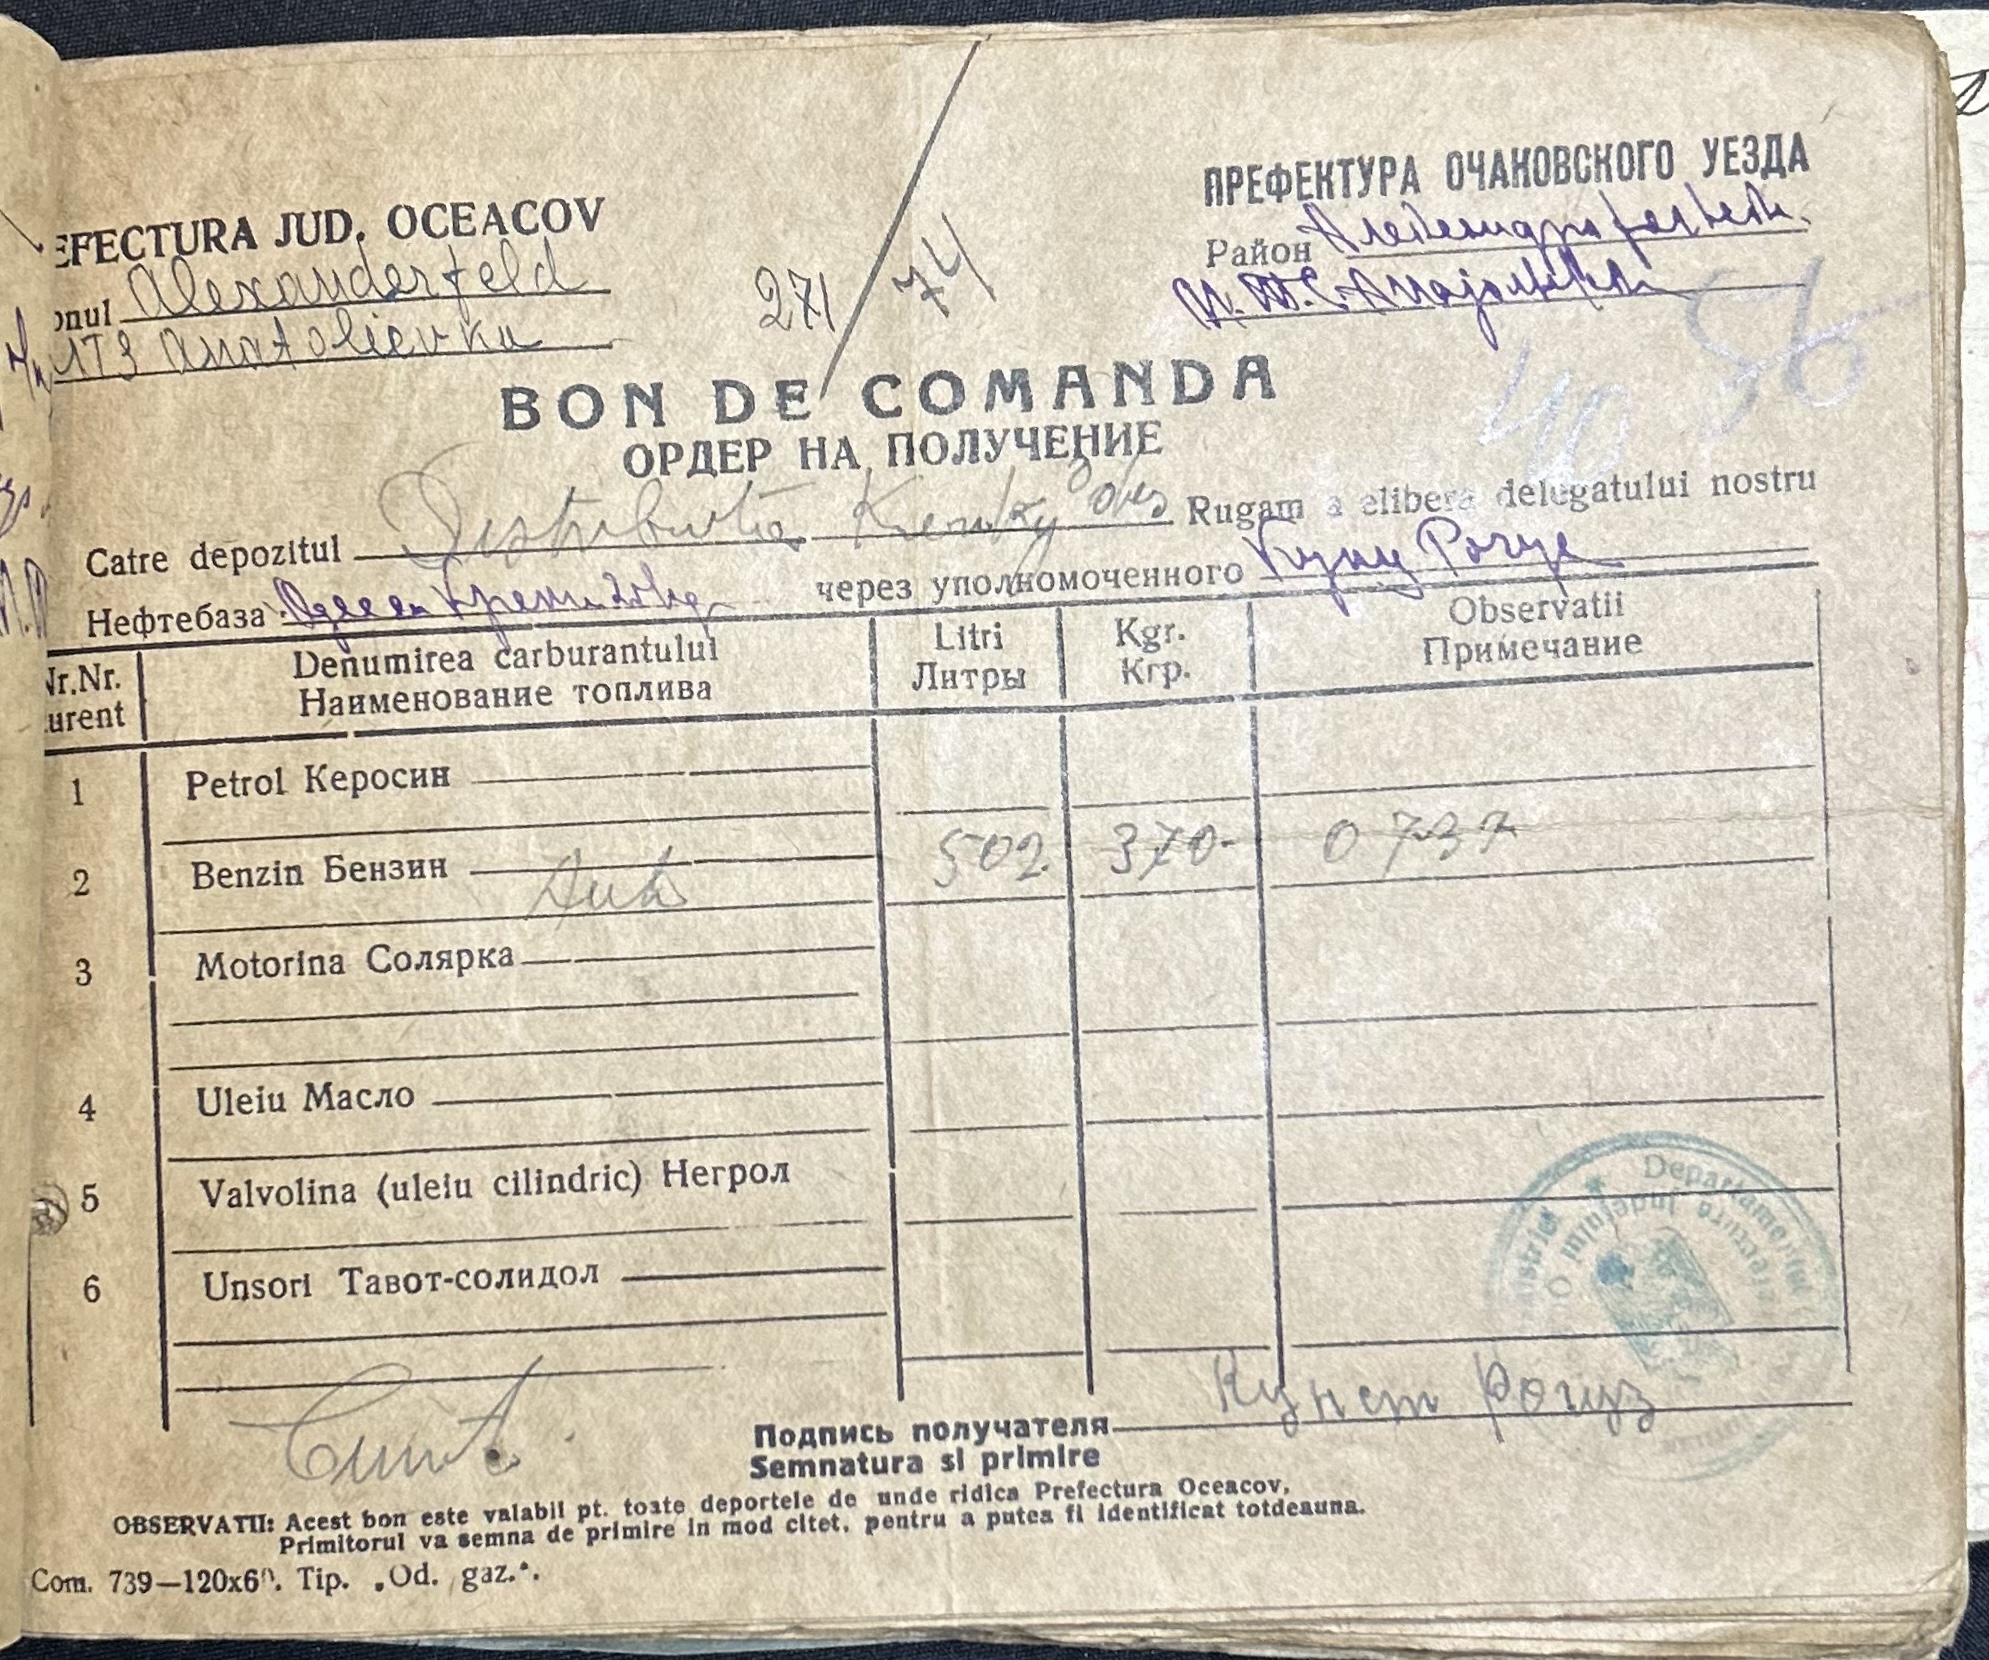 EFECTURA JUD. OCEACOV
onul Alexanderfeld
173 Anatolievka
271 / 74
ПРЕФЕКТУРА ОЧАКОВСКОГО УЕЗДА
Район
40 56
BON DE COMANDA
ОРДЕР НА ПОЛУЧЕНИЕ
Catre depozitul Distributia Rugam a elibera delegatului nostru
Нефтебаза Одесса через уполномоченного
Nr.Nr. urent
Denumirea carburantului
Наименование топлива
Litri
Литры
Kgr.
Кгр.
Observatii
Примечание
1 Petrol Керосин
2 Benzin Бензин 502 370 0737
3 Motorina Солярка
4 Uleiu Масло
5 Valvolina (uleiu cilindric) Негрол
6 Unsori Тавот-солидол
Departamentul
Подпись получателя Кунст Рогуз
Semnatura si primire
OBSERVATII: Acest bon este valabil pt. toate deportele de unde ridica Prefectura Oceacov.
Primitorul va semna de primire in mod citet, pentru a putea fi identificat totdeauna.
Com. 739—120x60. Tip. „Od. gaz.“.